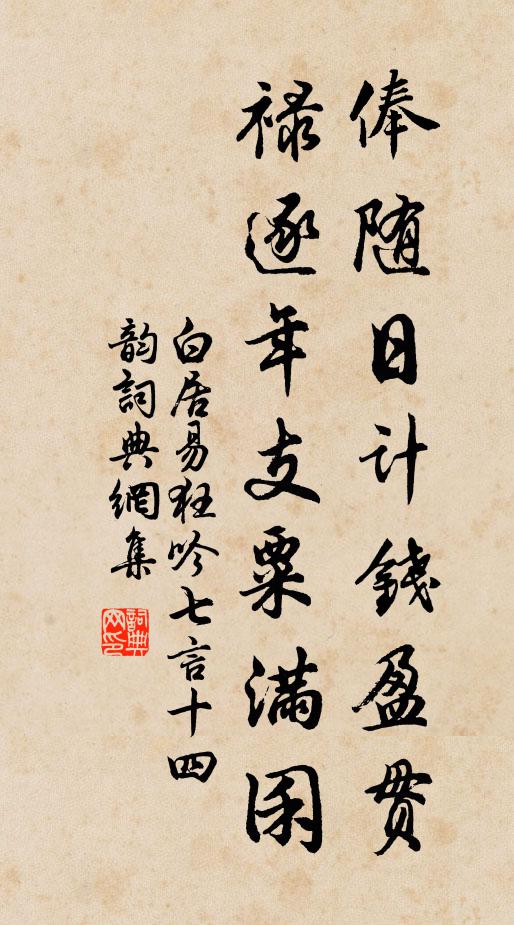 俸随日计錢盈贯
禄逐年支粟滿囷
白居易狂吟七言十四
韵詞典網集
詞典网印